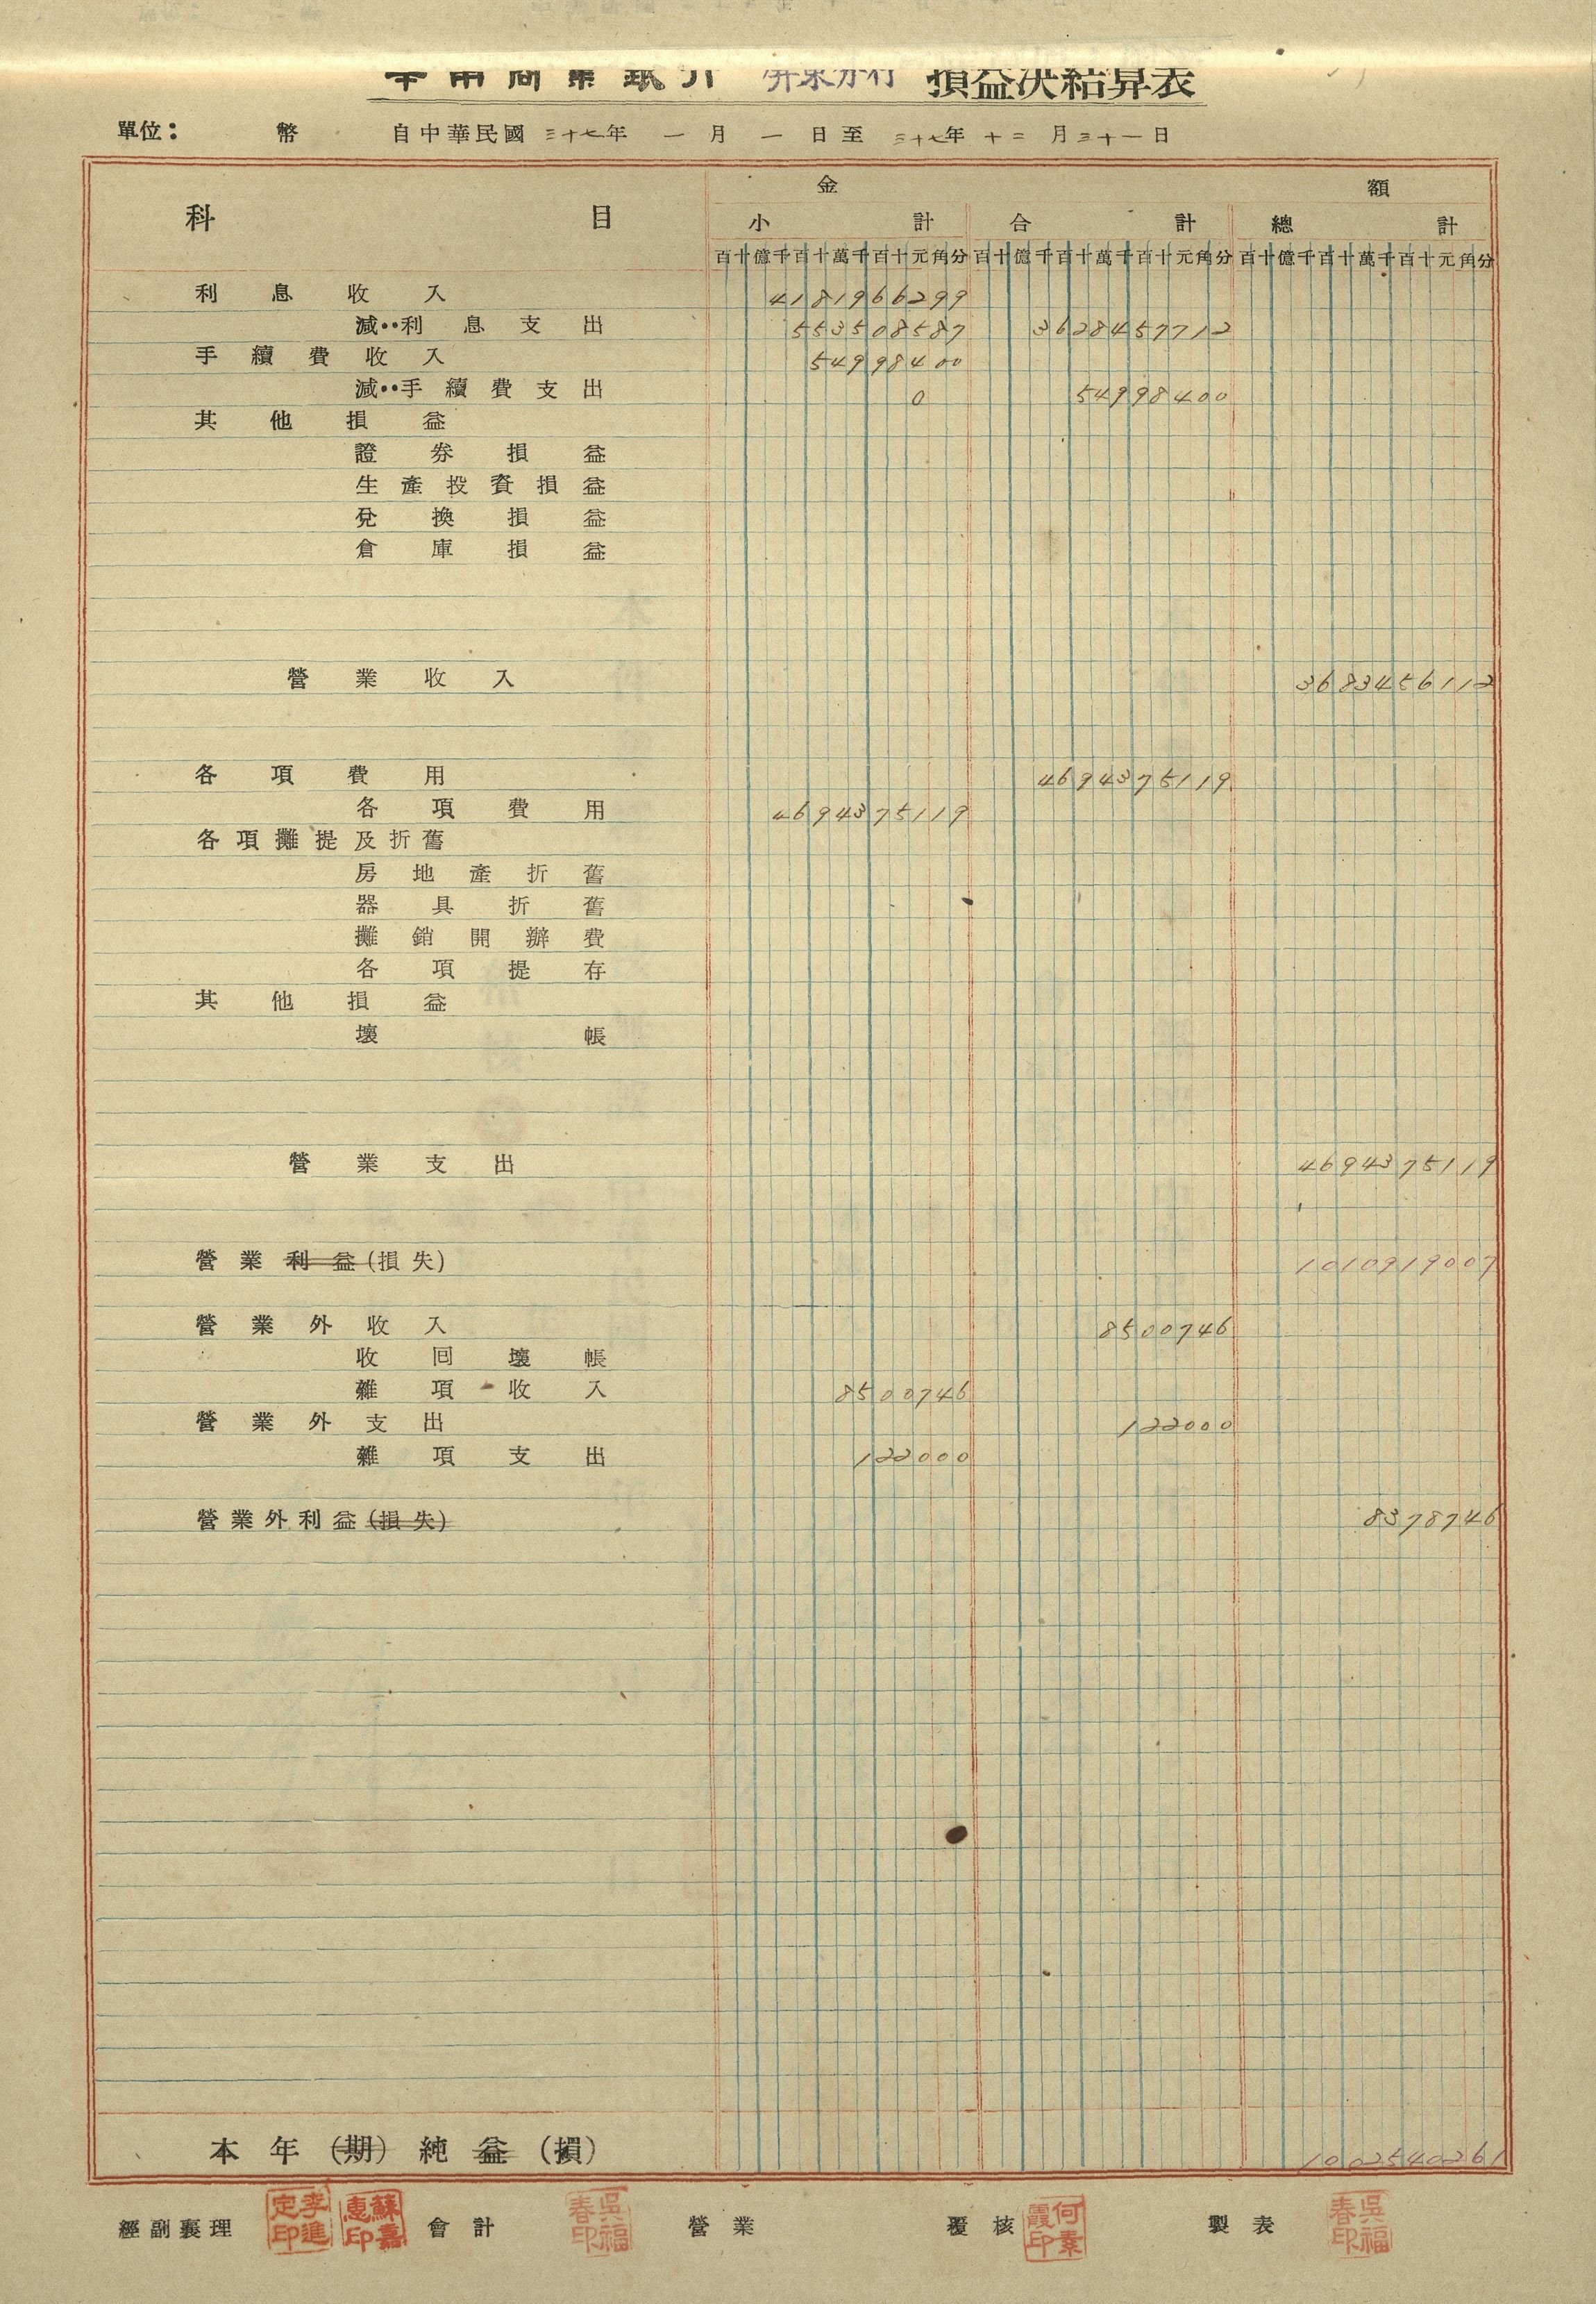 華南商業銀行 屏東分行 損益決結算表
單位： 幣 自中華民國三十七年一月一日至三十七年十二月三十一日
科目 金額
小計 合計 總計
百十億千百十萬千百十元角分 百十億千百十萬千百十元角分 百十億千百十萬千百十元角分
利息收入 4181966299
減：利息支出 553508587 3628457712
手續費收入 54998400
減：手續費支出 0 54998400
其他損益
證券損益
生產投資損益
兌換損益
倉庫損益
營業收入 3683456112
各項費用 4694375119
各項費用 4694375119
各項攤提及折舊
房地產折舊
器具折舊
攤銷開辦費
各項提存
其他損益
壞帳
營業支出 4694375119
營業利益(損失) 1010919007
營業外收入 8500746
收回壞帳
雜項收入 8500746
營業外支出 122000
雜項支出 122000
營業外利益(損失) 8378746
本年(期)純益(損) 1002540261
經副襄理 李進定印 蘇嘉惠印 會計 吳福春印 營業 覆核 何素霞印 製表 吳福春印